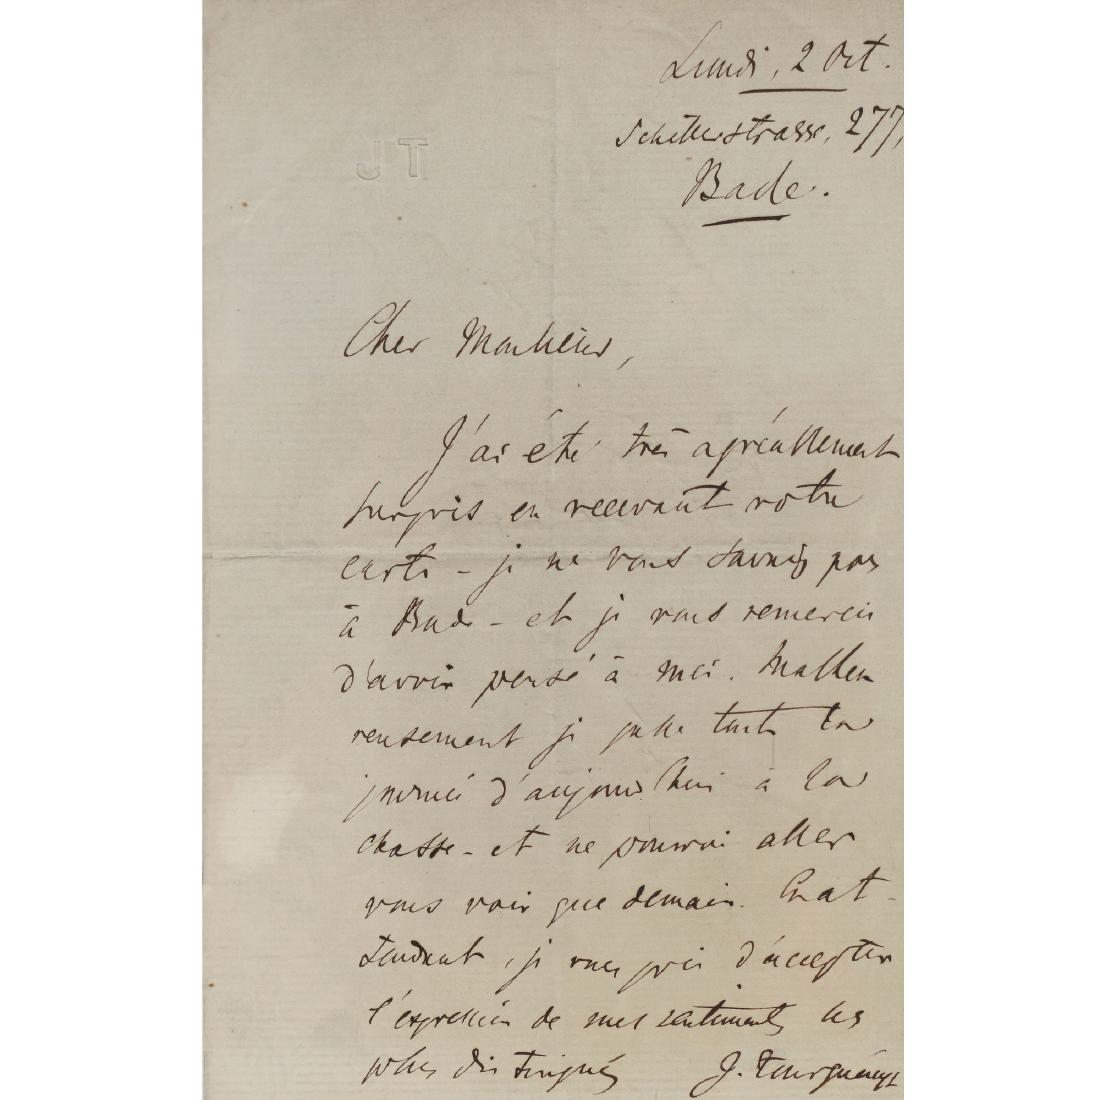 Lundi, 2 Oct.
Schillerstrasse, 277,
Bade.
JT
Cher Monsieur,
J'ai été très agréablement
surpris en recevant votre
carte – je ne vous savais pas
à Bade – et je vous remercie
d'avoir pensé à moi. Malheu
reusement je passe toute la
journée d'aujourd'hui à la
chasse – et ne pourrai aller
vous voir que demain. En at-
tendant, je vous prie d'accepter
l'expression de mes sentiments les
plus distingués J. Tourguéneff